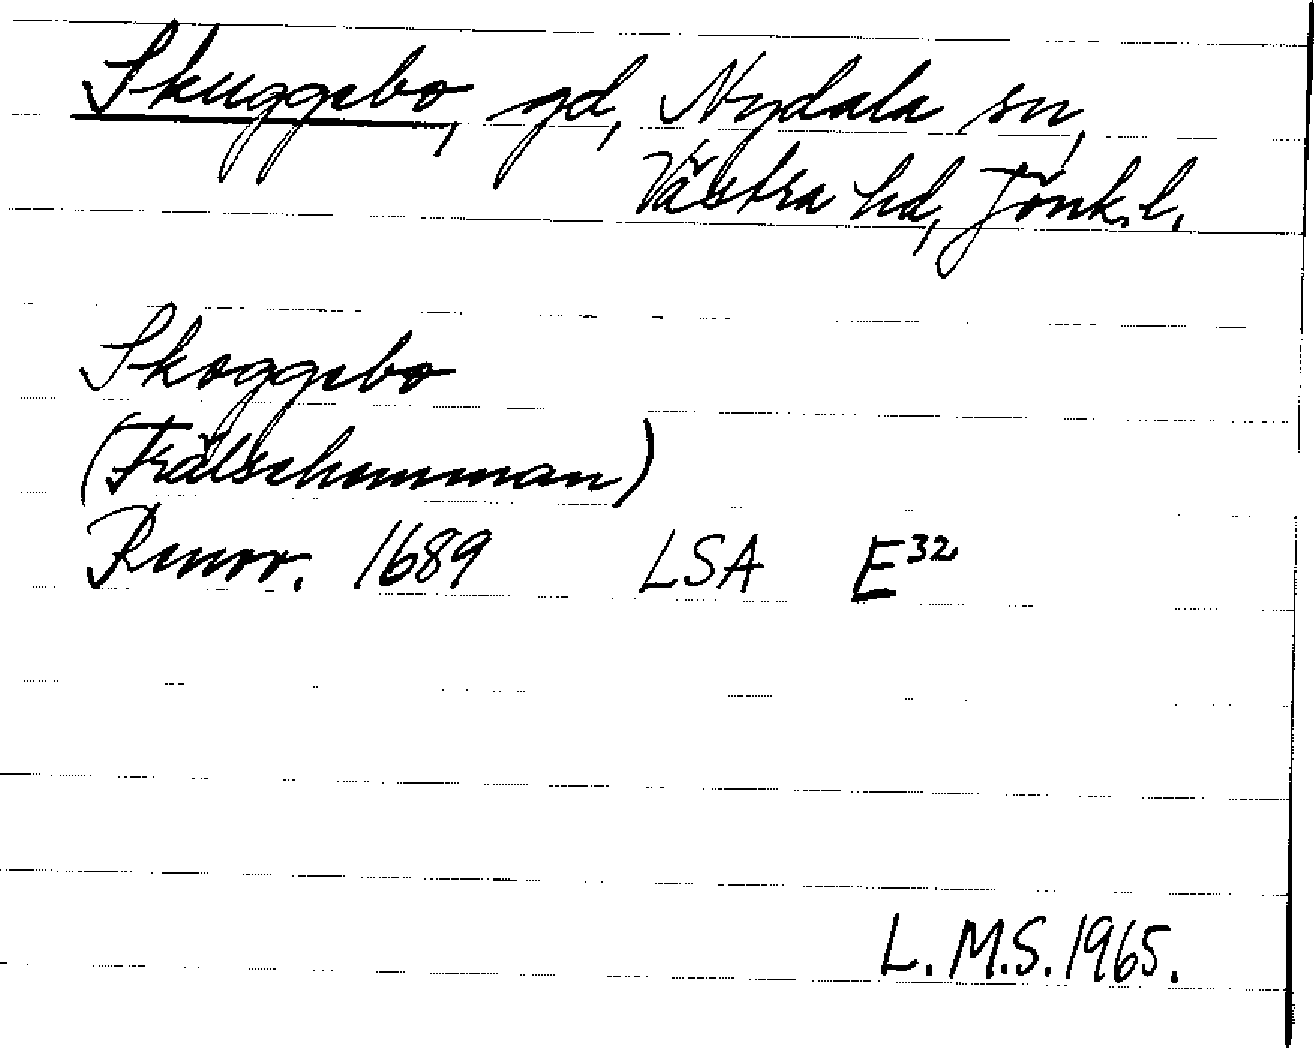 Skuggebo, gd, Nydala sn,
Västra hd, Jönk. l.
Skoggebo
(Frälsehemman)
Rmor. 1689 LSA E32
L. M.S. 1965.